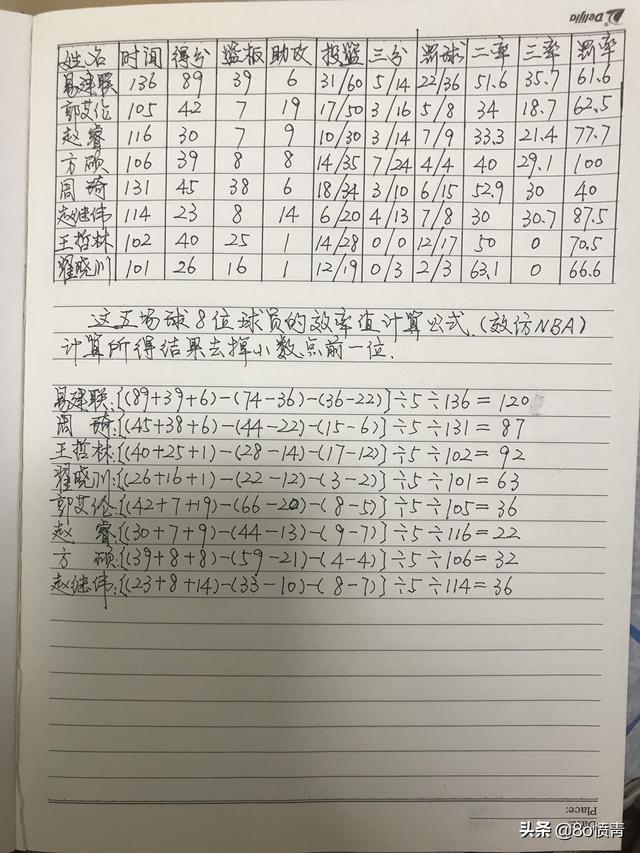 Delijia
姓名 时间 得分 篮板 助攻 投篮 三分 罚球 二率 三率 罚率
易建联 136 89 39 6 31/60 5/14 22/36 51.6 35.7 61.6
郭艾伦 105 42 7 19 17/50 3/16 5/8 34 18.7 62.5
赵睿 116 30 7 9 10/30 3/14 7/9 33.3 21.4 77.7
方硕 106 39 8 8 14/35 7/24 4/4 40 29.1 100
周琦 131 45 38 6 18/34 3/10 6/15 52.9 30 40
赵继伟 114 23 8 14 6/20 4/13 7/8 30 30.7 87.5
王哲林 102 40 25 1 14/28 0/0 12/17 50 0 70.5
翟晓川 101 26 16 1 12/19 0/3 2/3 63.1 0 66.6
这五场球8位球员的效率值计算公式.(效仿NBA)
计算所得结果去掉小数点前一位.
易建联:{(89+39+6)-(74-36)-(36-22)}÷5÷136=120
周琦:{(45+38+6)-(44-22)-(15-6)}÷5÷131=87
王哲林:{(40+25+1)-(28-14)-(17-12)}÷5÷102=92
翟晓川:{(26+16+1)-(22-12)-(3-2)}÷5÷101=63
郭艾伦:{(42+7+19)-(66-20)-(8-5)}÷5÷105=36
赵睿:{(30+7+9)-(44-13)-(9-7)}÷5÷116=22
方硕:{(39+8+8)-(59-21)-(4-4)}÷5÷106=32
赵继伟:{(23+8+14)-(33-10)-(8-7)}÷5÷114=36
Place:
Date:
头条 @80愤青